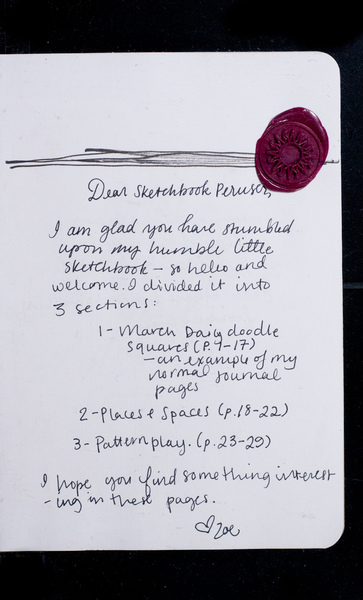 Dear Sketchbook Peruser,
I am glad you have stumbled
upon my humble little
sketchbook - so hello and
welcome. I divided it into
3 sections:
1- March Daily doodle
squares (p.4-17)
- an example of my
normal journal
pages
2- Places & Spaces (p.18-22)
3- Pattern play. (p.23-29)
I hope you find something interest
-ing in these pages.
♡ Zoe